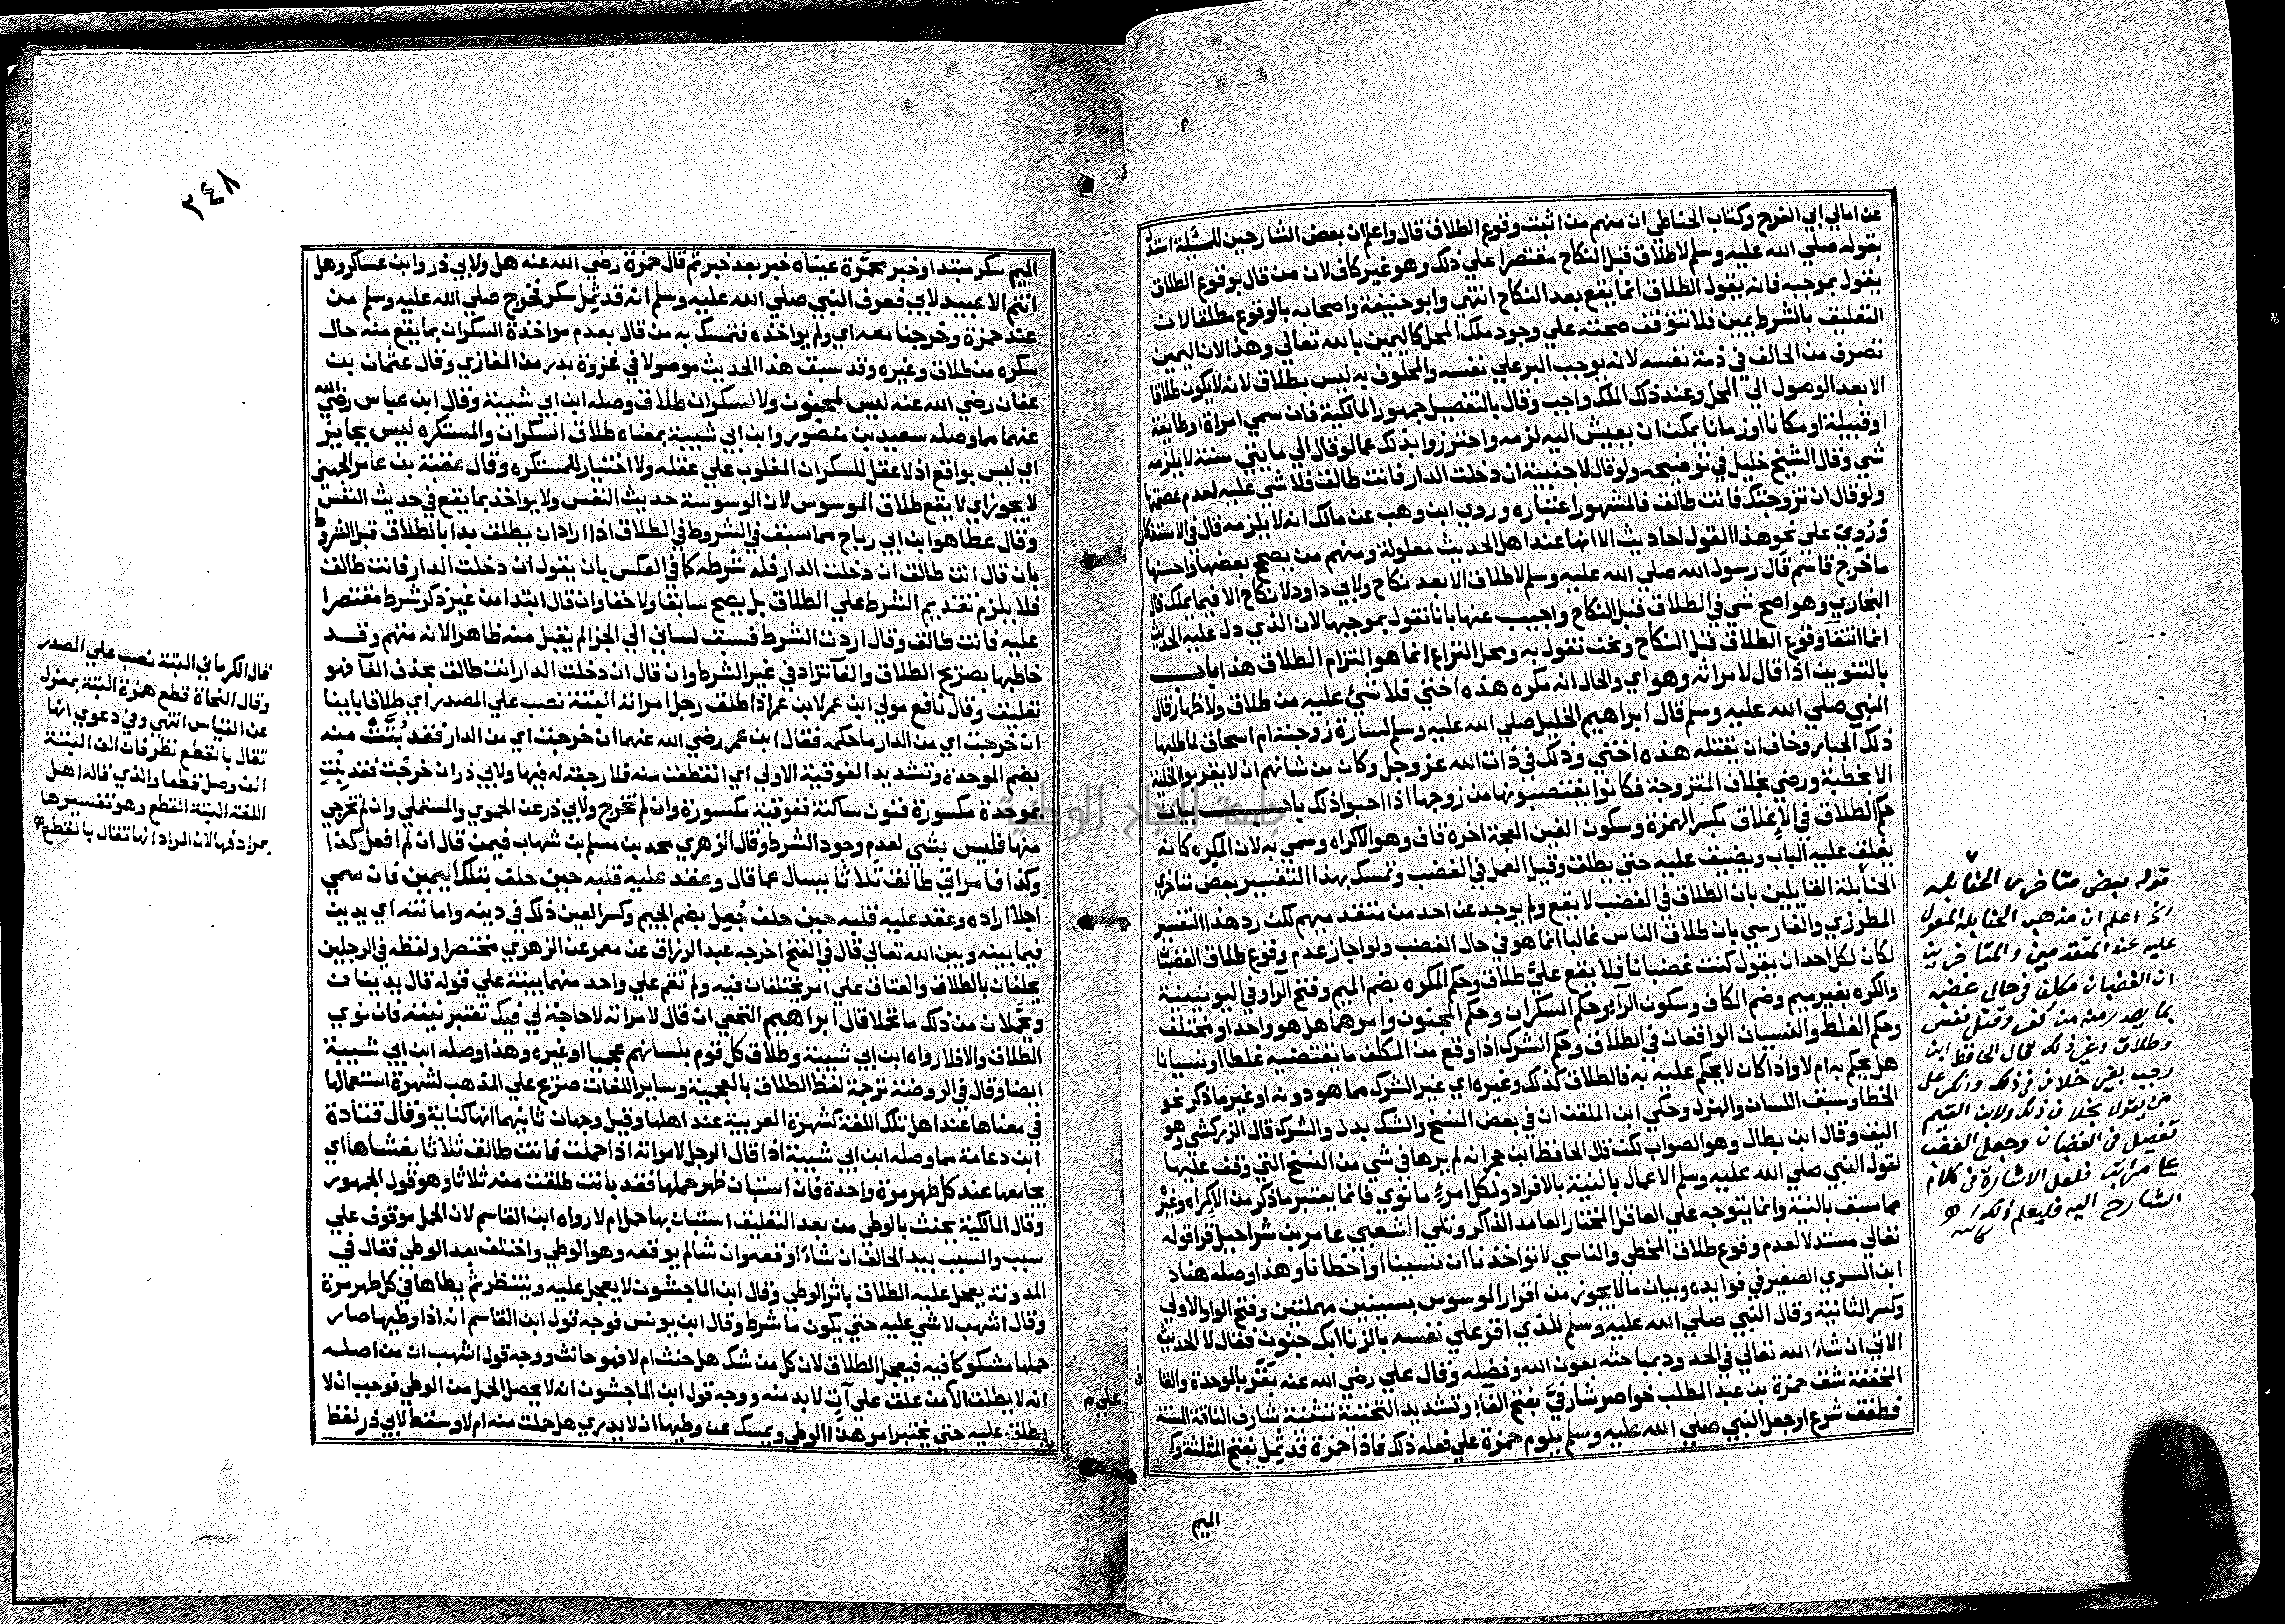 عن امالي ابي الفرج وكتاب الحناطي ان منهم من اثبت وقوع الطلاق قال واعلم ان بعض الشارحين للمسئلة استدل
بقوله صلي الله عليه وسلم لا طلاق قبل النكاح مقتصرا علي ذلك وهو غير كاف لان من قال بوقوع الطلاق
يقول بموجبه فانه يقول الطلاق انما يقع بعد النكاح انتهي وابو حنيفة واصحابه بالوقوع مطلقا لان
التعليق بالشرط يمين فلا تتوقف صحته علي وجود ملك المحل كاليمين بالله تعالي وهذا لان اليمين
تصرف من الحالف في ذمة نفسه لانه يوجب البر علي نفسه والمحلوف به ليس بطلاق لانه لا يكون طلاقا
الا بعد الوصول الي المحل وعند ذلك الملك واجب وقال بالتفصيل جمهور المالكية فان سمي امراة او طايفة
او قبيلة او مكانا او زمانا يمكن ان يعيش اليه لزمه واحترزوا بذلك عما لو قال الي مايتي سنة لا يلزمه
شي وقال الشيخ خليل في توضيحه ولو قال لاجنبية ان دخلت الدار فانت طالق فلا شي عليه لعدم عصمتها
ولو قال ان تزوجتك فانت طالق فالمشهور اعتباره وروي ابن وهب عن مالك انه لا يلزمه قال في الاستذكار
وروي علي نحو هذا القول احاديث الا انها عند اهل الحديث معلولة ومنهم من يصحح بعضها واحسنها
ما خرج قاسم قال رسول الله صلي الله عليه وسلم لا طلاق الا بعد نكاح ولابي داود لا نكاح الا فيما يملك قال
البخاري وهو اصح شي في الطلاق قبل النكاح واجيب عنها بانا نقول بموجبها لان الذي دل عليه الحديث
انما انتفآ وقوع الطلاق قبل النكاح ونحن نقول به ومحل النزاع انما هو التزام الطلاق هذا باب
بالتنوين اذا قال لامراته وهو اي والحال انه مكره هذه اختي فلا شئ عليه من طلاق ولا ظهار قال
النبي صلي الله عليه وسلم قال ابراهيم الخليل صلي الله عليه وسلم لسارة زوجته ام اسحاق لما طلبها
ذلك الجبار وخاف ان يقتله هذه اختي وذلك في ذات الله عز وجل وكان من شانهم ان لا يقربوا الخلية
الا بخطبة ورضي بخلاف المتزوجة فكانوا يغتصبونها من زوجها اذا احبوا ذلك باب بيان
حكم الطلاق في الاغلاق بكسر الهمزة وسكون الغين المعجمة اخره قاف وهو الاكراه وسمي به لان المكره كانه
يغلق عليه الباب ويضيق عليه حتي يطلق وقيل العمل في الغضب وتمسك بهذا التفسير بعض متاخري
الحنابلة القايلين بان الطلاق في الغضب لا يقع ولم يوجد عن احد من متقدميهم لكن رد هذا التفسير
المطرزي والفارسي بان طلاق الناس غالبا انما هو في حال الغضب ولو جاز عدم وقوع طلاق الغضبان
لكان لكل احد ان يقول كنت غضبانا فلا يقع عليّ طلاق وحكم المكره بضم الميم وفتح الرآ وفي اليونينية
والكره بغير ميم وضم الكاف وسكون الرآ وحكم السكران وحكم المجنون وامرهما هل هو واحد او مختلف
وحكم الغلط والنسيان الواقعان في الطلاق وحكم الشرك اذا وقع من المكلف ما يقتضيه غلطا او نسيانا
هل يحكم به ام لا واذا كان لا يحكم عليه به فالطلاق كذلك وغيره اي غير الشرك مما هو دونه او غير ما ذكر نحو
الخطا وسبق اللسان والهزل وحكي ابن الملقن ان في بعض النسخ والشك بدل والشرك قال الزركشي وهو
اليق وقال ابن بطال وهو الصواب لكن قال الحافظ ابن حجر انه لم يرها في شي من النسخ التي وقف عليها
لقول النبي صلي الله عليه وسلم الاعمال بالنية بالافراد ولكل امرئ ما نوي فانما يعتبر ما ذكر من الاكراه وغيره
مما سبق بالنية وانما يتوجه علي العاقل المختار العامد الذاكر وتلي الشعبي عامر بن شراحيل قرا قوله
تعالي مستدلا لعدم وقوع طلاق المخطي والناسي لا تواخذنا ان نسينا او اخطانا وهذا وصله هناد
ابن السري الصغير في فوايده وبيان ما لا يجوز من اقرار الموسوس بسينين مهملتين وفتح الواو الاولي
وكسر الثانية وقال النبي صلي الله عليه وسلم للذي اقر علي نفسه بالزنا ابك جنون فقال لا الحديث
الاتي ان شاء الله تعالي في الحدود بمباحثه بعون الله وفضله وقال علي رضي الله عنه بقر بالموحدة والقا
المخففة شق حمزة بن عبد المطلب خواصر شارفيّ بفتح الفآء وتشديد التحتية تثنية شارف الناقة المسنة
فطفق شرع او جعل النبي صلي الله عليه وسلم يلوم حمزة علي فعله ذلك فاذا حمزة قد ثمل بفتح المثلثة وكـ
الميم
قوله بعض متاخري الحنابله
الخ اعلم ان مذهب الحنابله المعول
عليه عند المتقدمين والمتاخرين
ان الغضبان مكلف في حال غضبه
بما يصدر منه من كفر وقتل نفس
وطلاق وغير ذلك قال الحافظ ابن
رجب بغير خلاف في ذلك وانكر على
من يقول بخلاف ذلك ولابن القيم
تفصيل في الغضبان وجعل الغضب
على مراتب فلعل الاشارة في كلام
الشارح اليه فليعلم ذلك اهـ
كاتبه
٣٤٨
الميم سكر مبتدا وخبر محمرة عيناه خبر بعد خبر ثم قال حمزة رضي الله عنه هل ولابي ذر وابن عساكر وهل
انتم الا عبيد لابي فعرف النبي صلي الله عليه وسلم انه قد ثمل سكر فخرج صلي الله عليه وسلم من
عند حمزة وخرجنا معه اي ولم يواخذه فتمسك به من قال بعدم مواخذة السكران بما يقع منه حال
سكره من طلاق وغيره وقد سبق هذا الحديث موصولا في غزوة بدر من المغازي وقال عثمان بن
عفان رضي الله عنه ليس لمجنون ولا لسكران طلاق وصله ابن ابي شيبة وقال ابن عباس رضي الله
عنهما مما وصله سعيد بن منصور وابن ابي شيبة بمعناه طلاق السكران والمستكره ليس بجايز
اي ليس بواقع اذ لا عقل للسكران المغلوب علي عقله ولا اختيار للمستكره وقال عقبة بن عامر الجهني
لا يجوز اي لا يقع طلاق الموسوس لان الوسوسة حديث النفس ولا يواخذ بما يقع في حديث النفس
وقال عطا هو ابن ابي رباح مما سبق في الشروط في الطلاق اذا اراد ان يطلق بدا بالطلاق قبل الشرط
بان قال انت طالق ان دخلت الدار فله شرطه كما في العكس بان يقول ان دخلت الدار فانت طالق
فلا يلزم تقديم الشرط علي الطلاق بل يصح سابقا ولاحقا وان قال ابتدا من غير ذكر شرط مقتصرا
عليه فانت طالق وقال اردت الشرط فسبق لساني الي الجزا لم يقبل منه ظاهرا لانه متهم وقد
خاطبها بصريح الطلاق والفآ تزاد في غير الشرط وان قال ان دخلت الدار انت طالق بحذف الفآ فهو
تعليق وقال نافع مولي ابن عمر لابن عمر اذا طلق رجل امراته البتة نصب علي المصدر اي طلاقا باينا
ان خرجت اي من الدار ما حكمه فقال ابن عمر رضي الله عنهما ان خرجت اي من الدار فقد بُتَّتْ منه
بضم الموحدة وتشديد الفوقية الاولي اي انقطعت منه فلا رجعة له فيها ولابي ذر ان خرجت فقد بِنْتِ
بموحدة مكسورة فنون ساكنة ففوقية مكسورة وان لم تخرج ولابي ذر عن الحموي والمستملي وان لم تخرجي
منها فليس بشي لعدم وجود الشرط وقال الزهري محمد بن مسلم بن شهاب فيمن قال ان لم افعل كذا
وكذا فامراتي طالق ثلاثا يسال عما قال وعقد عليه قلبه حين حلف بتلك اليمين فان سمي
اجلا اراده وعقد عليه قلبه حين حلف جُعِل بضم الجيم وكسر العين ذلك في دينه وامانته اي يدين
فيما بينه وبين الله تعالي قال في الفتح اخرجه عبد الرزاق عن معمر عن الزهري مختصرا ولفظه في الرجلين
يحلفان بالطلاق والعتاق علي امر يختلفان فيه ولم تقم علي واحد منهما بينة علي قوله قال يدينان
ويحملان من ذلك ما تحملا قال ابراهيم النخعي ان قال لامراته لا حاجة لي فيك تعتبر نيته فان نوي
الطلاق والا فلا رواه ابن ابي شيبة وطلاق كل قوم بلسانهم عجميا او غيره وهذا وصله ابن ابي شيبة
ايضا وقال في الروضة ترجمة لفظ الطلاق بالعجمية وساير اللغات صريح علي المذهب لشهرة استعمالها
في معناها عند اهل تلك اللغة كشهرة العربية عند اهلها وقيل وجهان ثانيهما انها كناية وقال قتادة
ابن دعامة مما وصله ابن ابي شيبة اذا قال الرجل لامراته اذا حملت فانت طالق ثلاثا يغشاها اي
يجامعها عند كل طهر مرة واحدة فان استبان ظهر حملها فقد بانت طلقت منه ثلاثا وهو قول الجمهور
وقال المالكية يحنث بالوطي من بعد التعليق استبان بها حمل ام لا رواه ابن القاسم لان الحمل موقوف علي
سبب والسبب بيد الحالف ان شاء اوقعه وان شا لم يوقعه وهو الوطي واختلف بعد الوطي فقال في
المدونة يعجل عليه الطلاق باثر الوطي وقال ابن الماجشون لا يعجل عليه وينتظر ثم يطاها في كل طهر مرة
وقال اشهب لا شي عليه حتي يكون ما شرط وقال ابن يونس فوجه قول ابن القاسم انه اذا وطيها صار
حملها مشكوكا فيه فيعجل الطلاق لان كل من شك هل حنث ام لا فهو حانث ووجه قول اشهب ان من اصله
انه لا يطلق الا من علق علي آت لا بد منه ووجه قول ابن الماجشون انه لا يحصل الحمل من الوطي فوجب ان لا
يطلق عليه حتي يختبر امر هذا الوطي ويمسك عن وطيها اذ لا يدري هل حملت منه ام لا وسقط لابي ذر لفظ
علي م
قال الكرماني البتة نصب علي المصدر
وقال النحاة قطع همزة البتة بمعزل
عن القياس انتهي وفي دعوي انها
تقال بالقطع نظر فان الف البتة
الف وصل قطعا والذي قاله اهل
اللغة البتة القطع وهو تفسيرها
بمرادفها لان المراد انها تقال بالقطع
جامعة النجاح الوطنية